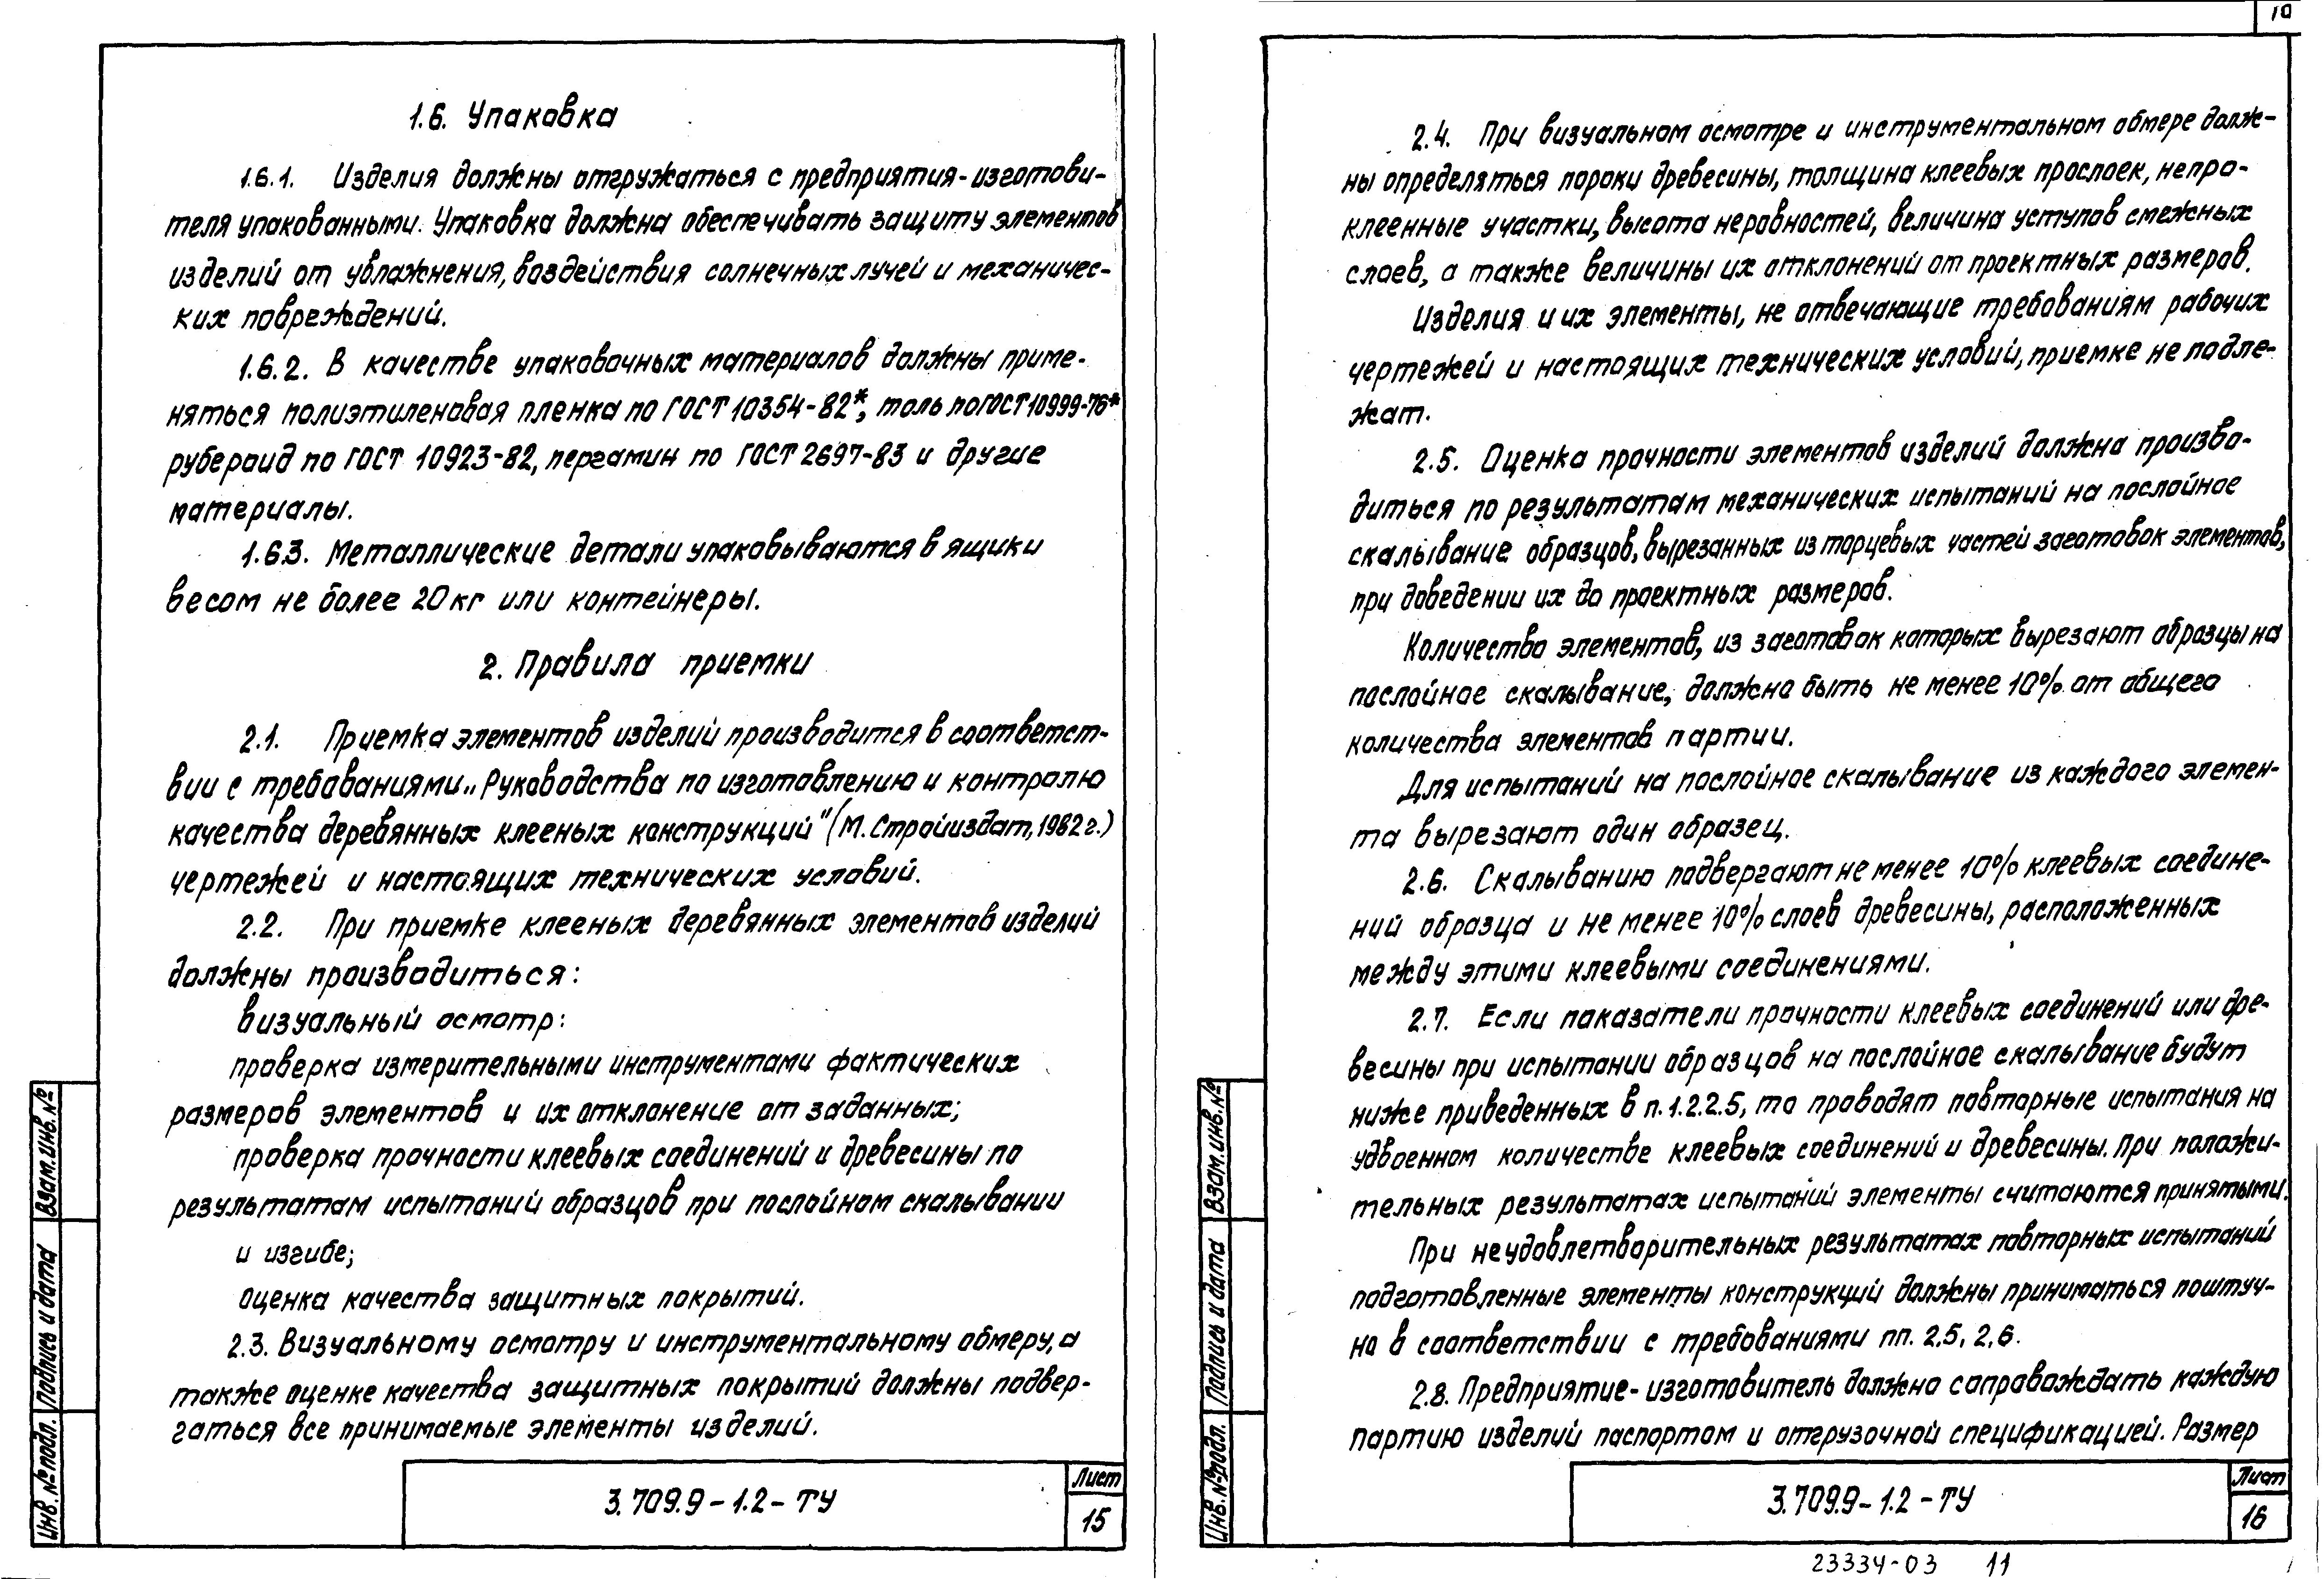 1.6. Упаковка
1.6.1. Изделия должны отгружаться с предприятия-изготови-
теля упакованными. Упаковка должна обеспечивать защиту элементов
изделий от увлажнения, воздействия солнечных лучей и механичес-
ких повреждений.
1.6.2. В качестве упаковочных материалов должны приме-
няться полиэтиленовая пленка по ГОСТ 10354-82*, толь по ГОСТ 10999-76*
рубероид по ГОСТ 10923-82, пергамин по ГОСТ 2697-83 и другие
материалы.
1.6.3. Металлические детали упаковываются в ящики
весом не более 20 кг или контейнеры.
2. Правила приемки
2.1. Приемка элементов изделий производится в соответст-
вии с требованиями „Руководства по изготовлению и контролю
качества деревянных клееных конструкций" (М. Стройиздат, 1982 г.)
чертежей и настоящих технических условий.
2.2. При приемке клееных деревянных элементов изделий
должны производиться:
визуальный осмотр:
проверка измерительными инструментами фактических
размеров элементов и их отклонение от заданных;
проверка прочности клеевых соединений и древесины по
результатам испытаний образцов при послойном скалывании
и изгибе;
оценка качества защитных покрытий.
2.3. Визуальному осмотру и инструментальному обмеру, а
также оценке качества защитных покрытий должны подвер-
гаться все принимаемые элементы изделий.
3.709.9-1.2-ТУ
Лист
15
Инв. № подл.
Подпись и дата
Взам. инв. №
10
2.4. При визуальном осмотре и инструментальном обмере долж-
ны определяться пороки древесины, толщина клеевых прослоек, непро-
клеенные участки, высота неровностей, величина уступов смежных
слоев, а также величины их отклонений от проектных размеров.
Изделия и их элементы, не отвечающие требованиям рабочих
чертежей и настоящих технических условий, приемке не подле-
жат.
2.5. Оценка прочности элементов изделий должна произво-
диться по результатам механических испытаний на послойное
скалывание образцов, вырезанных из торцевых частей заготовок элементов,
при доведении их до проектных размеров.
Количество элементов, из заготовок которых вырезают образцы на
послойное скалывание, должно быть не менее 10% от общего
количества элементов партии.
Для испытаний на послойное скалывание из каждого элемен-
та вырезают один образец.
2.6. Скалыванию подвергают не менее 10% клеевых соедине-
ний образца и не менее 10% слоев древесины, расположенных
между этими клеевыми соединениями.
2.7. Если показатели прочности клеевых соединений или дре-
весины при испытании образцов на послойное скалывание будут
ниже приведенных в п. 1.2.2.5, то проводят повторные испытания на
удвоенном количестве клеевых соединений и древесины. При положи-
тельных результатах испытаний элементы считаются принятыми.
При неудовлетворительных результатах повторных испытаний
подготовленные элементы конструкций должны приниматься поштуч-
но в соответствии с требованиями пп. 2.5, 2,6.
2.8. Предприятие-изготовитель должно сопровождать каждую
партию изделий паспортом и отгрузочной спецификацией. Размер
3.709.9-1.2-ТУ
Лист
16
Инв. № подл.
Подпись и дата
Взам. инв. №
23334-03 11